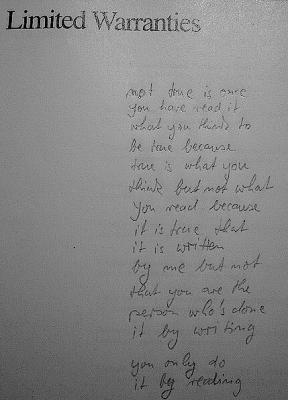 Limited Warranties
not true is once
you have read it
what you think to
be true because
true is what you
think but not what
you read because
it is true that
it is written
by me but not
that you are the
person who's done
it by writing
you only do
it by reading